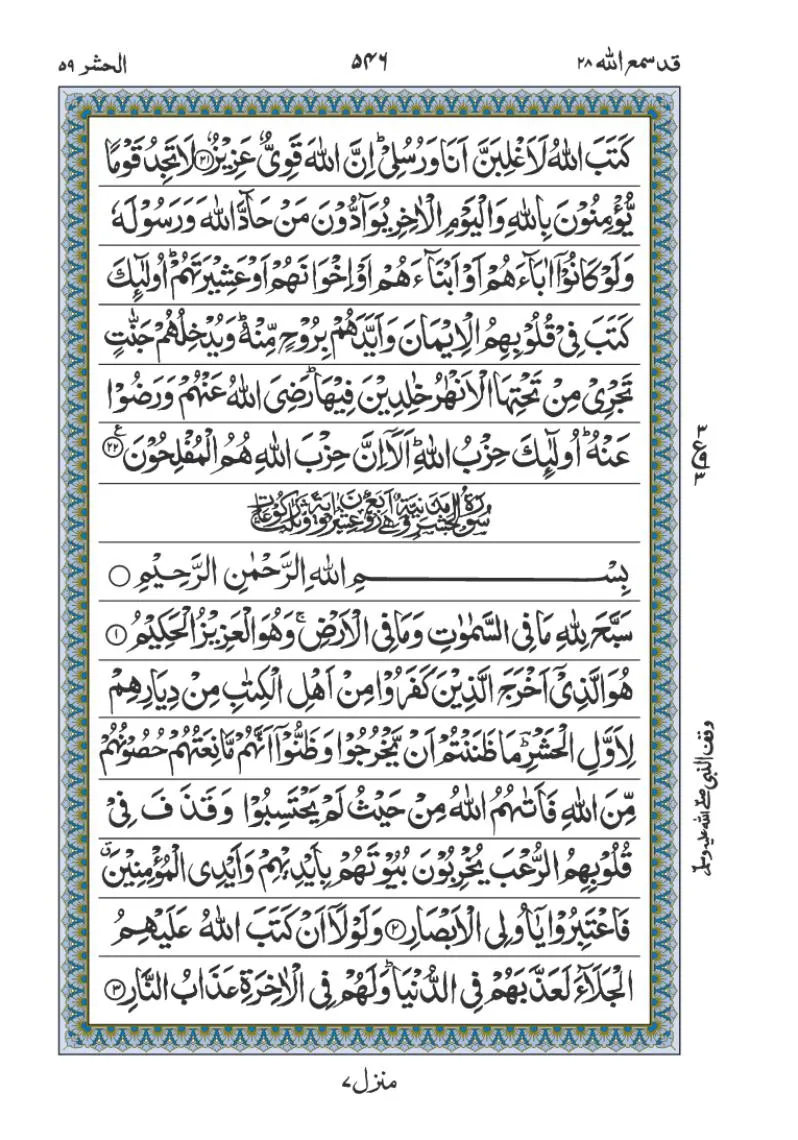 قد سمع الله ٢٨
٥٤٦
الحشر ٥٩
كَتَبَ اللّٰهُ لَاَغْلِبَنَّ اَنَا وَرُسُلِیْ ؕ اِنَّ اللّٰهَ قَوِیٌّ عَزِیْزٌ ﴿۲۱﴾ لَا تَجِدُ قَوْمًا
یُّؤْمِنُوْنَ بِاللّٰهِ وَالْیَوْمِ الْاٰخِرِ یُوَآدُّوْنَ مَنْ حَآدَّ اللّٰهَ وَرَسُوْلَهٗ
وَلَوْ كَانُوْۤا اٰبَآءَهُمْ اَوْ اَبْنَآءَهُمْ اَوْ اِخْوَانَهُمْ اَوْ عَشِیْرَتَهُمْ ؕ اُولٰٓئِكَ
كَتَبَ فِیْ قُلُوْبِهِمُ الْاِیْمَانَ وَاَیَّدَهُمْ بِرُوْحٍ مِّنْهُ ؕ وَیُدْخِلُهُمْ جَنّٰتٍ
تَجْرِیْ مِنْ تَحْتِهَا الْاَنْهٰرُ خٰلِدِیْنَ فِیْهَا ؕ رَضِیَ اللّٰهُ عَنْهُمْ وَرَضُوْا
عَنْهُ ؕ اُولٰٓئِكَ حِزْبُ اللّٰهِ ؕ اَلَاۤ اِنَّ حِزْبَ اللّٰهِ هُمُ الْمُفْلِحُوْنَ ﴿۲۲﴾ ع
ع ٣ ٣
سورة الحشر مدنية وهي اربع وعشرون اية وثلث ركوعات
بِسْمِ اللّٰهِ الرَّحْمٰنِ الرَّحِیْمِ ○
سَبَّحَ لِلّٰهِ مَا فِی السَّمٰوٰتِ وَمَا فِی الْاَرْضِ ۚ وَهُوَ الْعَزِیْزُ الْحَكِیْمُ ﴿۱﴾
هُوَ الَّذِیْۤ اَخْرَجَ الَّذِیْنَ كَفَرُوْا مِنْ اَهْلِ الْكِتٰبِ مِنْ دِیَارِهِمْ
لِاَوَّلِ الْحَشْرِ ؔؕ مَا ظَنَنْتُمْ اَنْ یَّخْرُجُوْا وَظَنُّوْۤا اَنَّهُمْ مَّانِعَتُهُمْ حُصُوْنُهُمْ
مِّنَ اللّٰهِ فَاَتٰىهُمُ اللّٰهُ مِنْ حَیْثُ لَمْ یَحْتَسِبُوْا وَقَذَفَ فِیْ
قُلُوْبِهِمُ الرُّعْبَ یُخْرِبُوْنَ بُیُوْتَهُمْ بِاَیْدِیْهِمْ وَاَیْدِی الْمُؤْمِنِیْنَ ۗ
وقف النبی صلی اللہ علیہ وسلم
فَاعْتَبِرُوْا یٰۤاُولِی الْاَبْصَارِ ﴿۲﴾ وَلَوْلَاۤ اَنْ كَتَبَ اللّٰهُ عَلَیْهِمُ
الْجَلَآءَ لَعَذَّبَهُمْ فِی الدُّنْیَا ؕ وَلَهُمْ فِی الْاٰخِرَةِ عَذَابُ النَّارِ ﴿۳﴾
منزل ٧